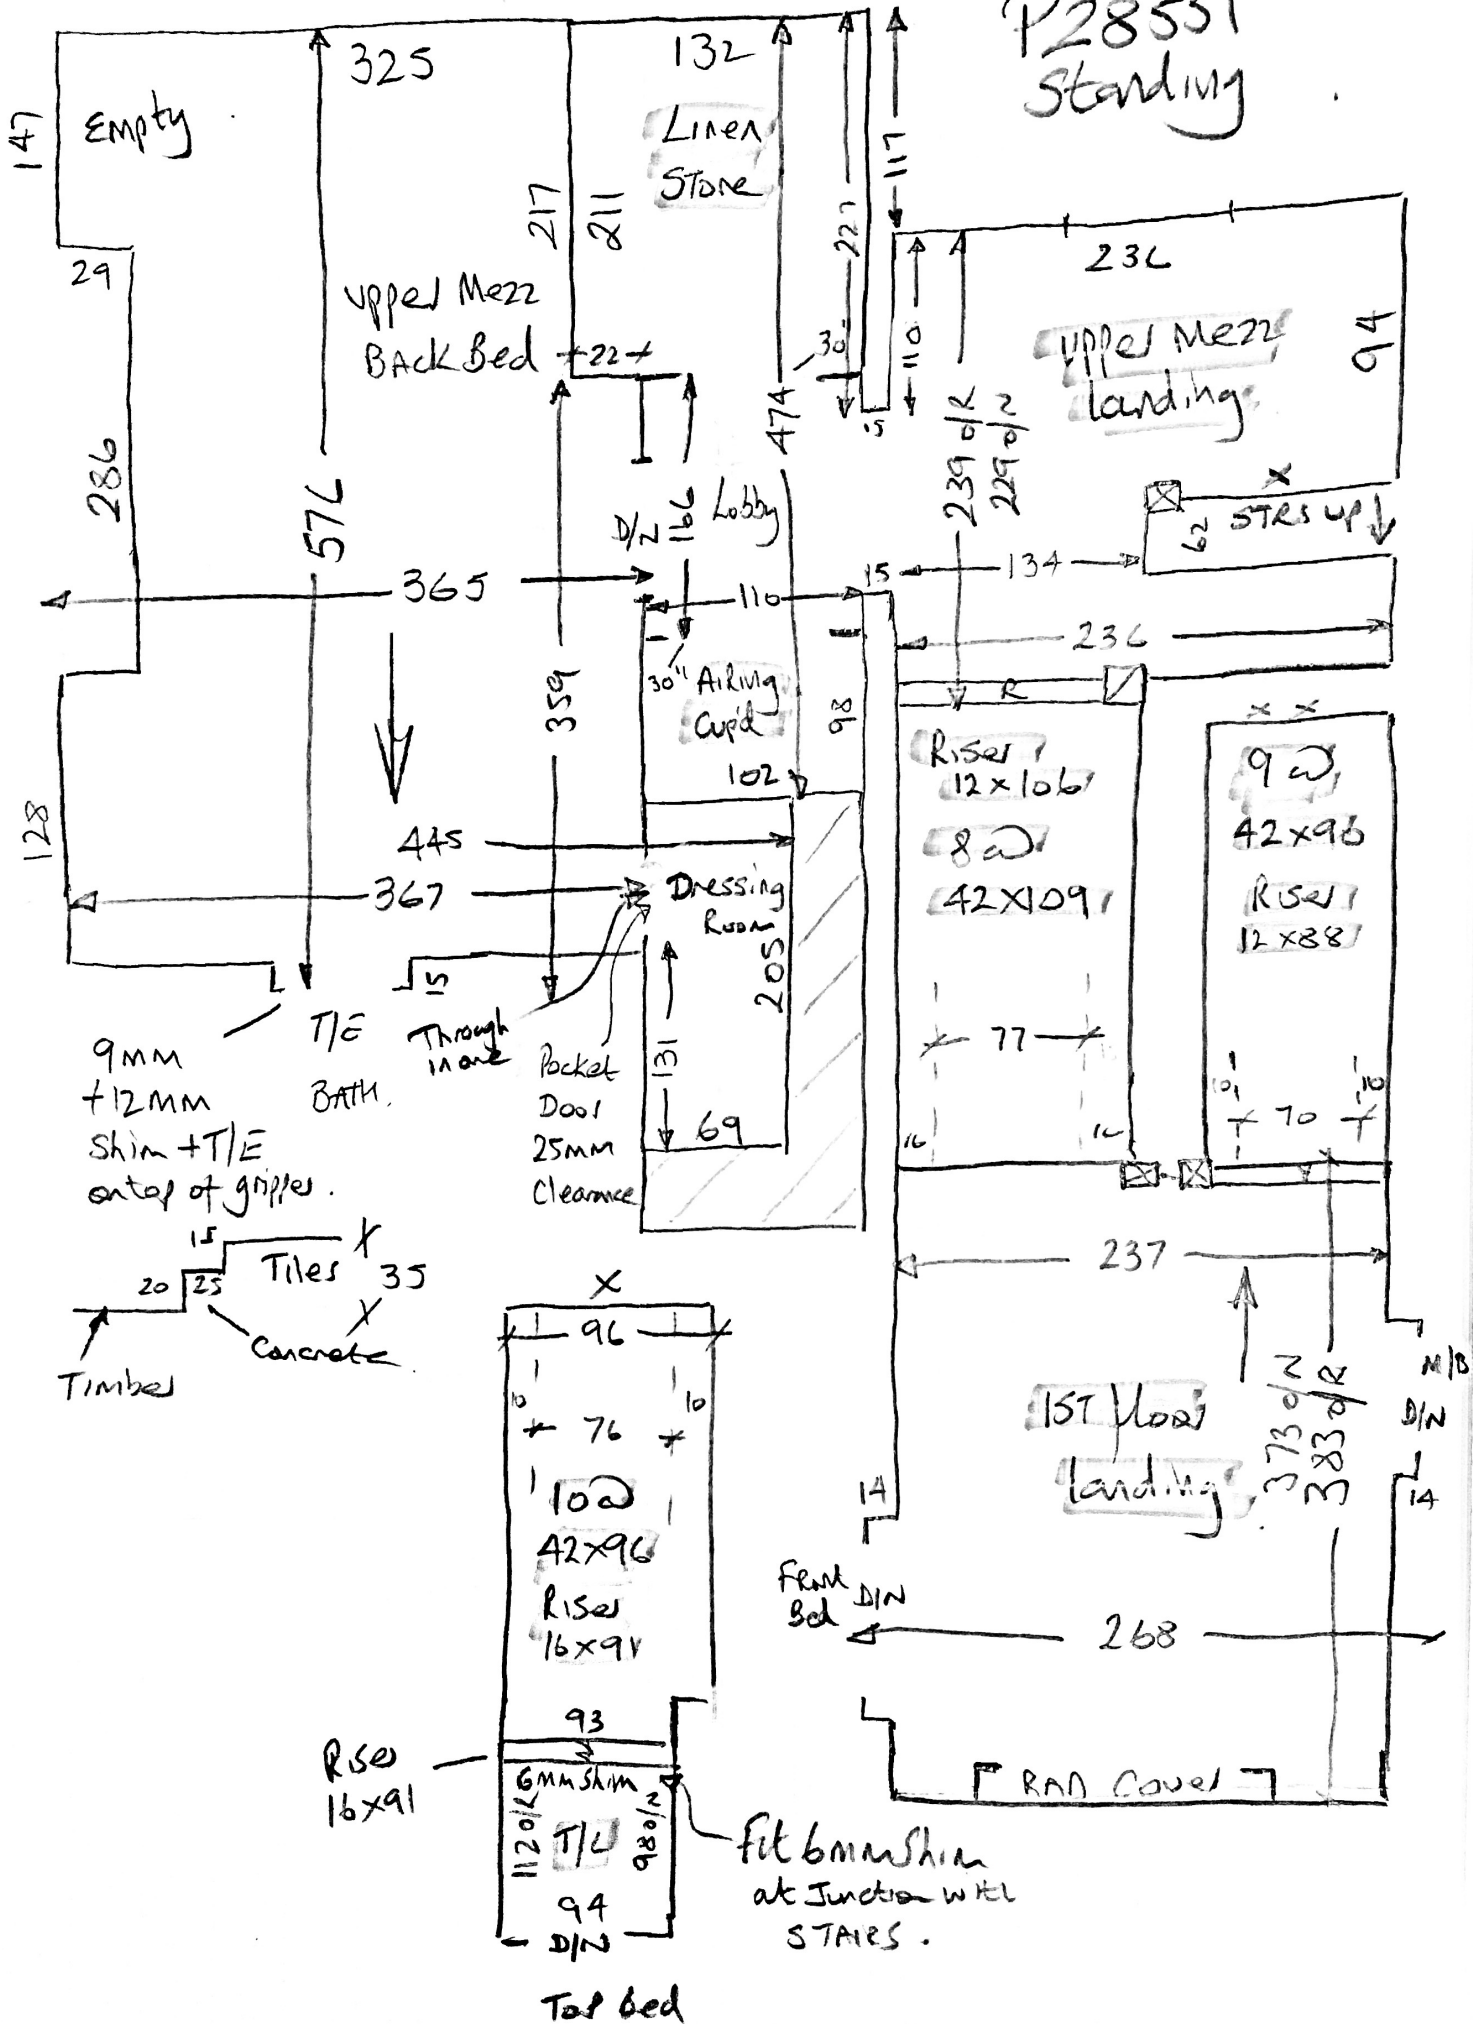 P28551
Standing
325
132
147
Empty
Linen
Store
117
217
211
227
29
236
Upper Mezz
Back Bed
22
30
110
Upper Mezz
landing
94
15
474
239 O/R
229 O/N
286
576
D/N
166
Lobby
X
62
STRS UP
365
15
134
110
236
359
30"
Airing
Cup'd
98
R
102
Riser
12x106
8 @
42x109
X X
9 @
42x96
Riser
12x88
128
445
367
Dressing
Room
205
15
131
77
9mm
+12mm
Shim + T/E
on top of gripper.
T/E
BATH.
Through
in one
Pocket
Door
25mm
Clearance
69
16
16
10
70
10
15
Tiles
X
35
20
25
X
Concrete
Timber
237
X
96
10
76
10
10 @
42x96
Riser
16x91
M/B
D/N
1ST floor
landing
373 O/N
383 O/R
14
14
Front
Bed
D/N
268
93
Riser
16x91
6mm Shim
112 O/R
T/L
98 O/N
RAD Cover
Fit 6mm Shim
at Junction with
STAIRS.
94
D/N
Top Bed